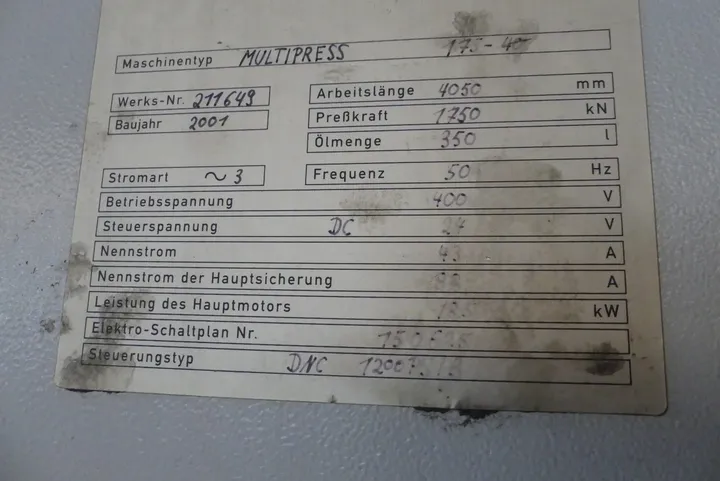 Maschinentyp MULTIPRESS 175-40
Werks-Nr. 211649
Baujahr 2001
Arbeitslänge 4050 mm
Preßkraft 1750 kN
Ölmenge 350 l
Stromart ~ 3
Frequenz 50 Hz
Betriebsspannung 400 V
Steuerspannung DC 24 V
Nennstrom 43 A
Nennstrom der Hauptsicherung A
Leistung des Hauptmotors kW
Elektro-Schaltplan Nr.
Steuerungstyp DNC